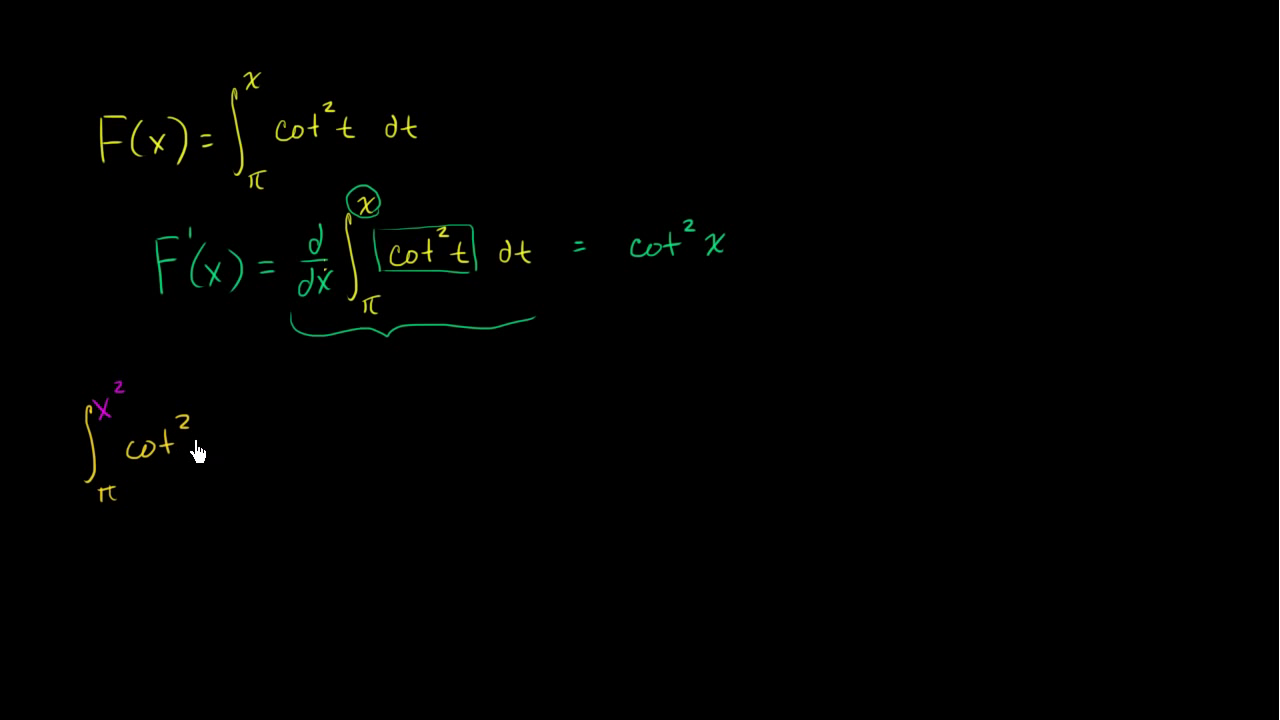 F(x) = ∫_π^x cot² t dt
F'(x) = d/dx ∫_π^x cot² t dt = cot² x
∫_π^x² cot²